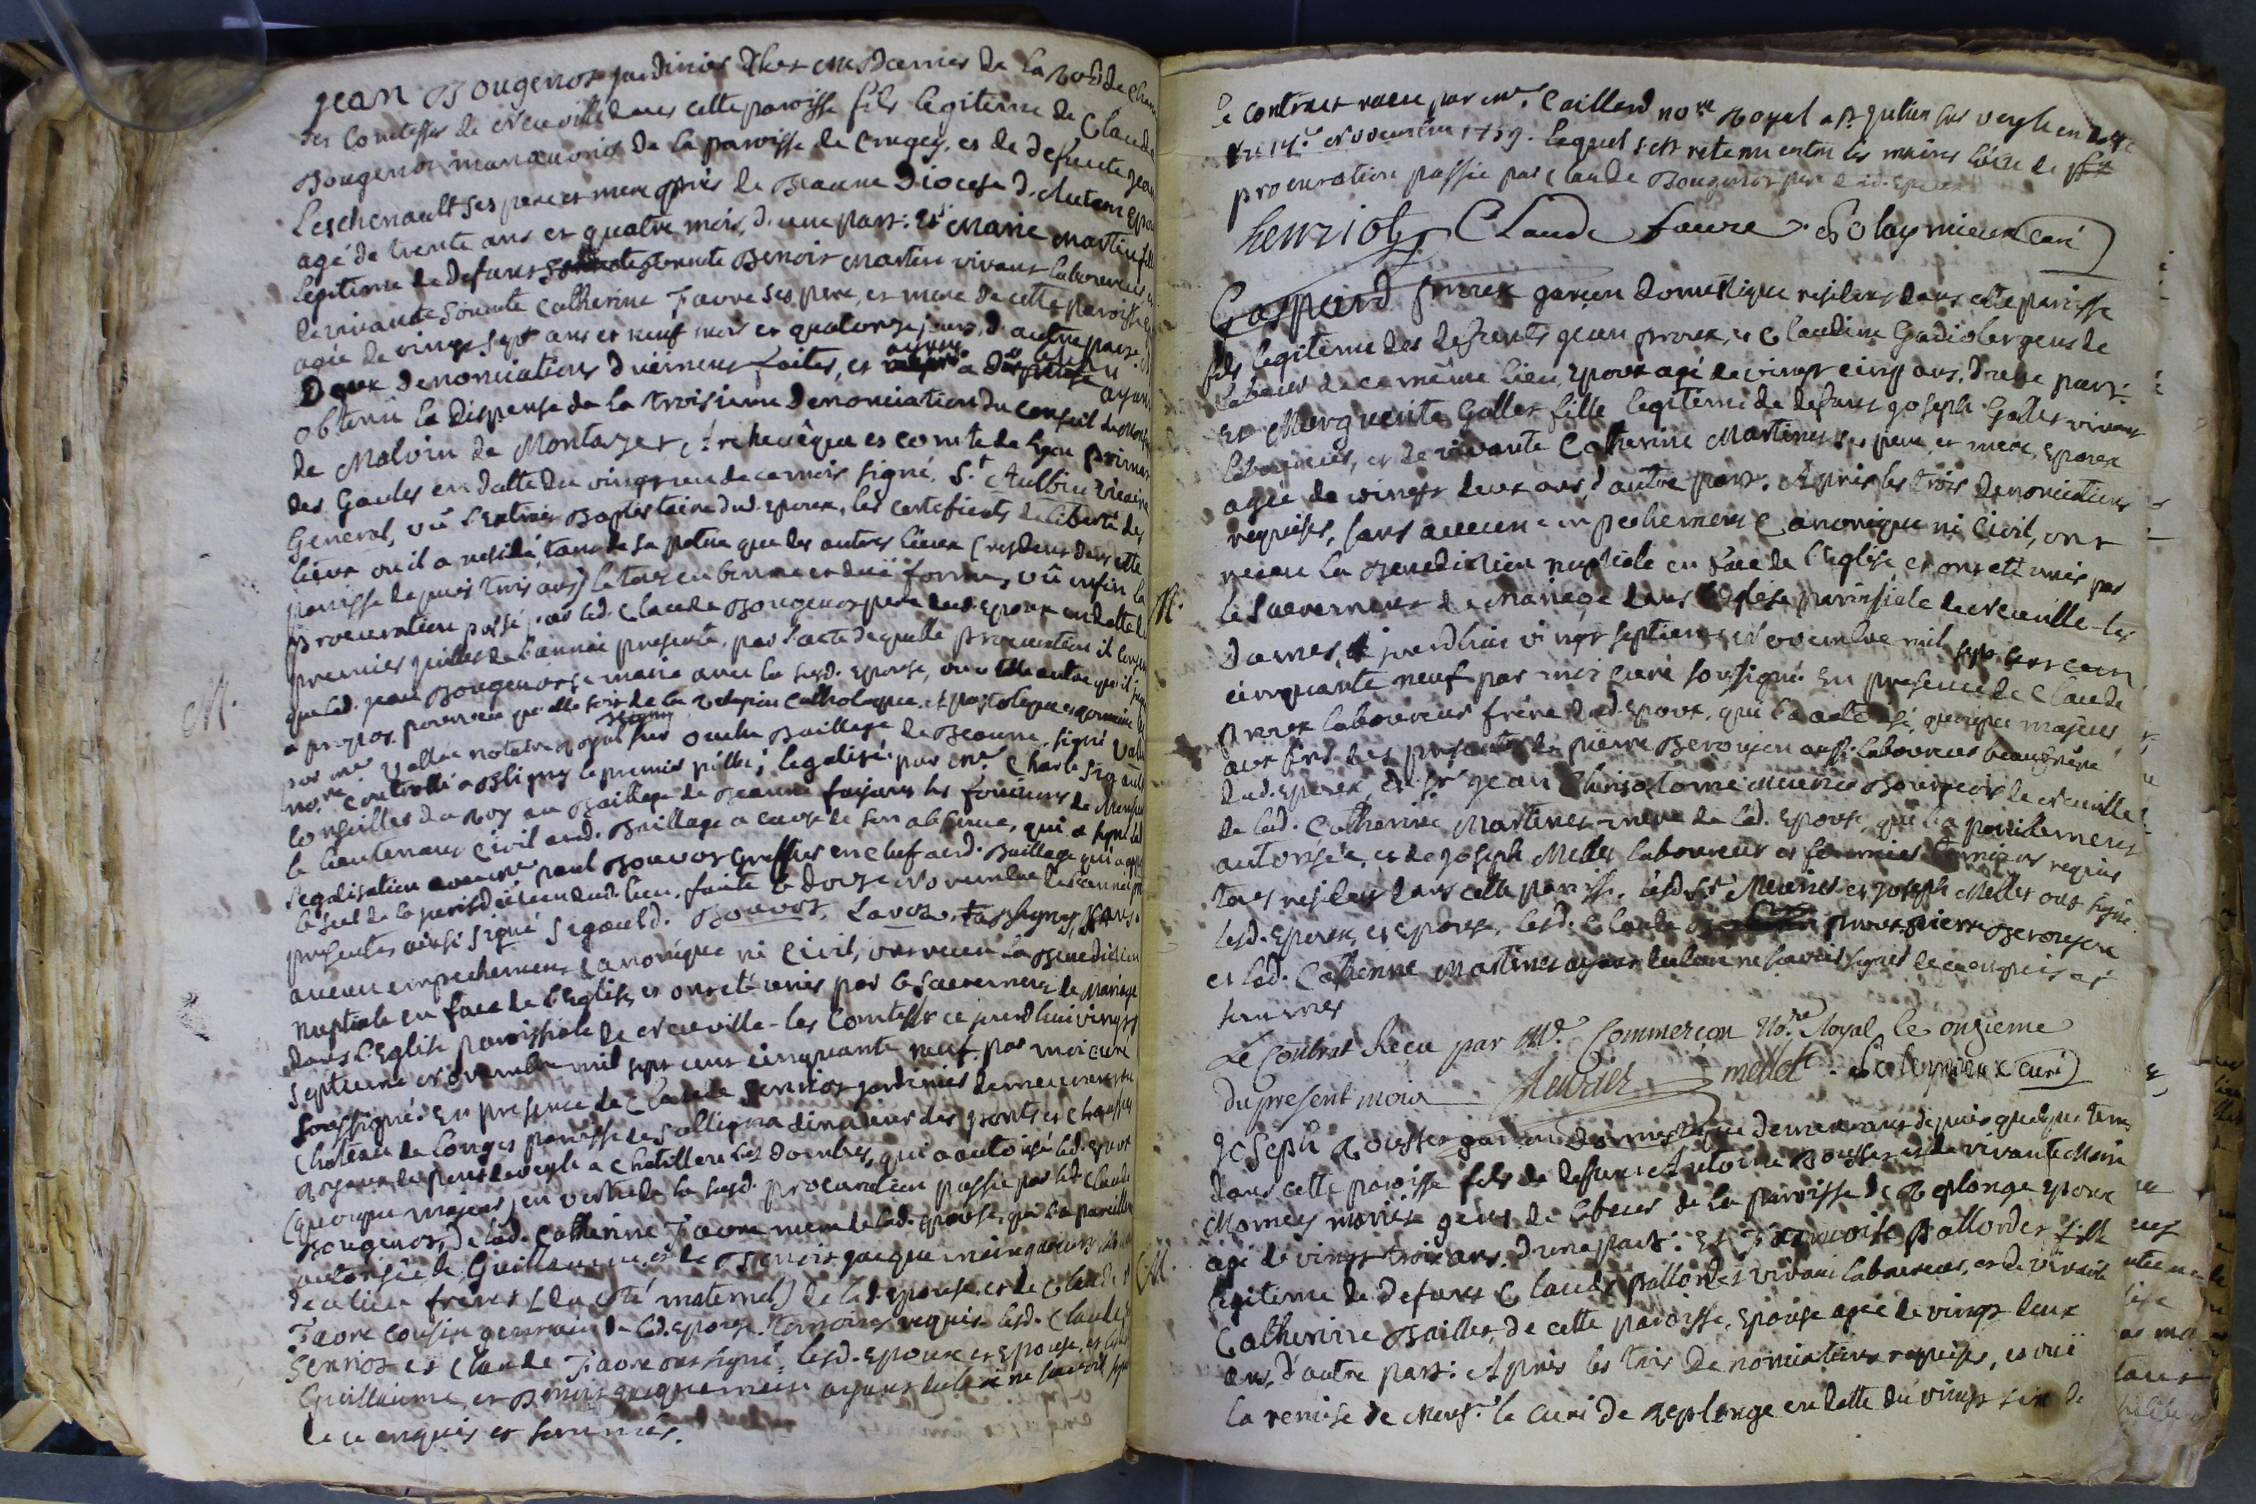 Jean Bougenot jardinier chez Mes Dames de la
des Comtesses de Neuville dans cette paroisse fils legitime de Claude
Bougenot manouvrier de la paroisse de Crugey, et de defunte Jean
Leschenault ses pere et mere près de Beaune Diocese d'Autun Epou
agé de trente ans et quatre mois, d'une part. Et Marie Martin fille
legitime de defunt Benoit Martin vivant laboureur et
de vivante Catherine Favre ses pere, et mere de cette paroisse
agée de vingt sept ans et neuf mois et quatorze jours, d'autre part.
Deux denonciations duëment faites, et ayant
obtenû la Dispense de la troisieme Denonciation du conseil de
de Malvin de Montazet Archevêque et comte de Lyon primat
des Gaules en datte du vingt un de ce mois signé, St Aulbin vicaire
General, vû l'extrait Baptistaire dud. Epoux, les certificats de liberté des
lieux où il a residé tant de sa patrie que des autres lieux (residant dans cette
paroisse depuis trois ans) le tout en bonne et duë forme, vû enfin la
procuration passé par led. Claude Bougenot pere dud. Epoux en datte du
premier juillet de l'année presente, par l'acte de quelle procuration il
que led. Jean Bougenot se marie avec la susd. Epouse, ou telle autre qu'il
à propos, pourveu qu'elle soit de la Religion Catholique, Apostolique et Romaine
par me Vallée notaire royal Baillage de Beaune, signé
nore Controllé à Bligny le premier juillet; legalisé par Mr. Charle Sigault
conseiller du Roy au Baillage de Beaune faisant les fonctions de
le lieutenant Civil aud. Baillage a cause de son absence, qui a signé
legalisation avec me paul Bouvot Greffier en chef aud. Baillage qui a
le scel de la jurisdiction dud. lieu. faite le douze Novembre de l'année
presentes ainsi signé Sigauld. Bouvot, Sans
aucun empechement Canonique ni Civil, ont reçu la Benediction
Nuptiale en face de l'Eglise, et ont été unis par le Sacrement de Mariage
dans l'Eglise paroissiale de Neuville-les Comtesse ce jourdhui vingt
septieme Novembre mil sept cent cinquante neuf. par moi curé
soussigné. En presence de Claude Henriot jardinier demeurant au
Chateau de Longes paroisse de Sulligna directeur des ponts et chaussées
à Chatillon les Dombes, qui a autorisé led. Epoux
(quoique majeur) en vertu de la susd. procuration passée par led. Claude
Bougenot, De lad. Catherine Favre mere de lad. Epouse, qui l'a pareillem
autorisée de Guillaume, et de Benoit
de ce lieu freres (du côté maternel) de lad. epouse, et de Claude
Favre cousin germain de lad. Epouse. Temoins requis. Lesd. Claude
Henriot et Claude Favre ont signé, lesd. Epoux et Epouse, et
Guillaume, et Benoit ayant declaré ne savoir signer
de ce enquis et sommés.
M.
Le contract reçu par me. Caillard nore Royal a St Julien sur Veyle en
15e. Novembre 1759. lequel s'est retenu entre les mains
procuration passée par Claude Bougenot pere dud. Epoux
henriot Claude favre Curé
Gaspard proux garçon Domestique residant dans cette paroisse
fils legitime des defunts jean proux, et Claudine Gadiolet gens de
labeur de ce même lieu, Epoux agé de vingt cinq ans, d'une part.
Et Marguerite Gallet fille legitime de defunt Joseph Gallet vivant
laboureur, et de vivante Catherine Martinet ses pere, et mere, Epouse
agée de vingt deux ans, d'autre part. Après les trois Denonciations
requises, sans aucun empechement Canonique ni Civil, ont
reçu la Benediction nuptiale en face de l'Eglise et ont eté unis par
le Sacrement de Mariage dans l'Eglise paroissiale de Neuville-les
Dames, ce jourdhui vingt septieme Novembre mil sept cent
cinquante neuf par moi curé soussigné. En presence de Claude
proux laboureur frére dud. Epoux, qui l'a autorisé, quoique majeur,
aux fins des presentes, de pierre Beroujon aussi laboureur beaufrère
dud. Epoux, de Sr jean Chrisostome Meurier Bourgeois de Neuville
de lad. Catherine Martinet mere de lad. Epouse, qui l'a pareillement
autorisée, et de Joseph Mellet laboureur et fermier temoins requis
tous residant dans cette paroisse. lesd. Sr Meurier et Joseph Mellet ont signé.
lesd. Epoux, et Epouse, lesd. Claude proux pierre Beroujon
et lad. Catherine Martinet ayant declaré ne savoir signer de ce enquis et
sommés
Le Contrat Recu par Me. Commerçon Nore. Royal le onzieme
du present mois Meurier mellet Curé
M.
Joseph Rousset garçon domestique demeurant depuis quelque tems
dans cette paroisse fils de defunt Antoine Rousset et de vivante Marie
Morney mariés gens de labeur de la paroisse de Replonge Epoux
agé de vingt trois ans, d'une part. Et Francoise Pallordet fille
legitime de defunt Claude Pallordet vivant laboureur, et de vivante
Catherine Baillet, de cette paroisse, Epouse agée de vingt deux
ans, d'autre part. Après les trois Denonciations requises, et vuë
la remise de Monsr. le curé de Replonge en datte du vingt six de